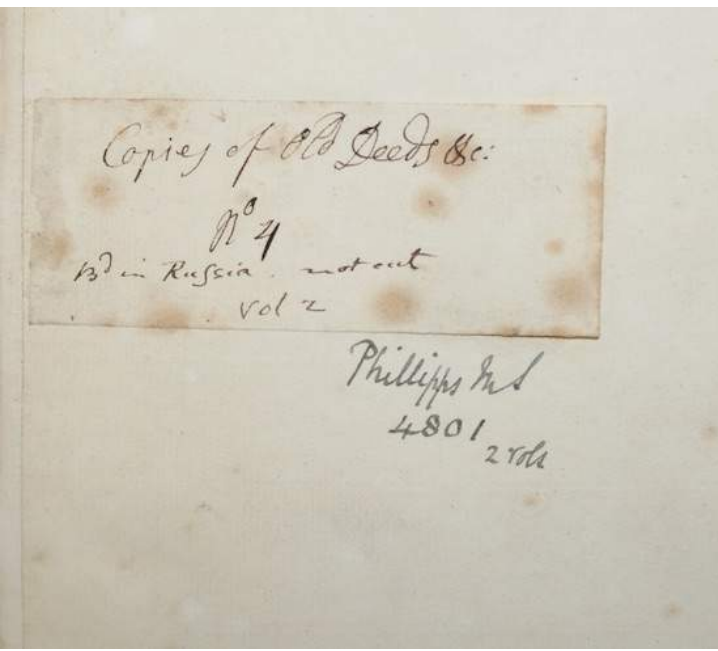 Copies of Old Deeds &c:
No 4
Bd in Russia. not cut
vol 2
Phillipps MS
4801
2 vols